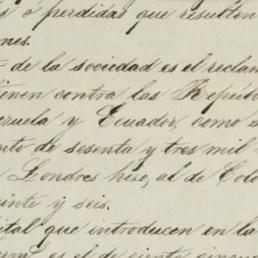 s ó perdidas que resulten
ones.
de la sociedad es el reclam
tienen contra las Repúb
zuela y Ecuador, como s
nto de sesenta y tres mil
Londres hizo, al de Colo
einte y seis.
ital que introducen en la
es el de ciento cincu